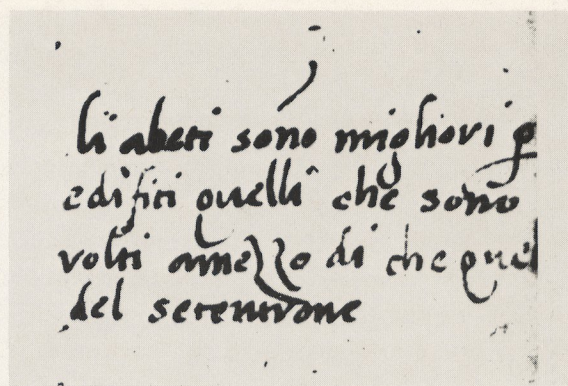 li abeti sono migliori ꝑ
edifiti quelli che sono
volti amezzo di che quel
del setentrione